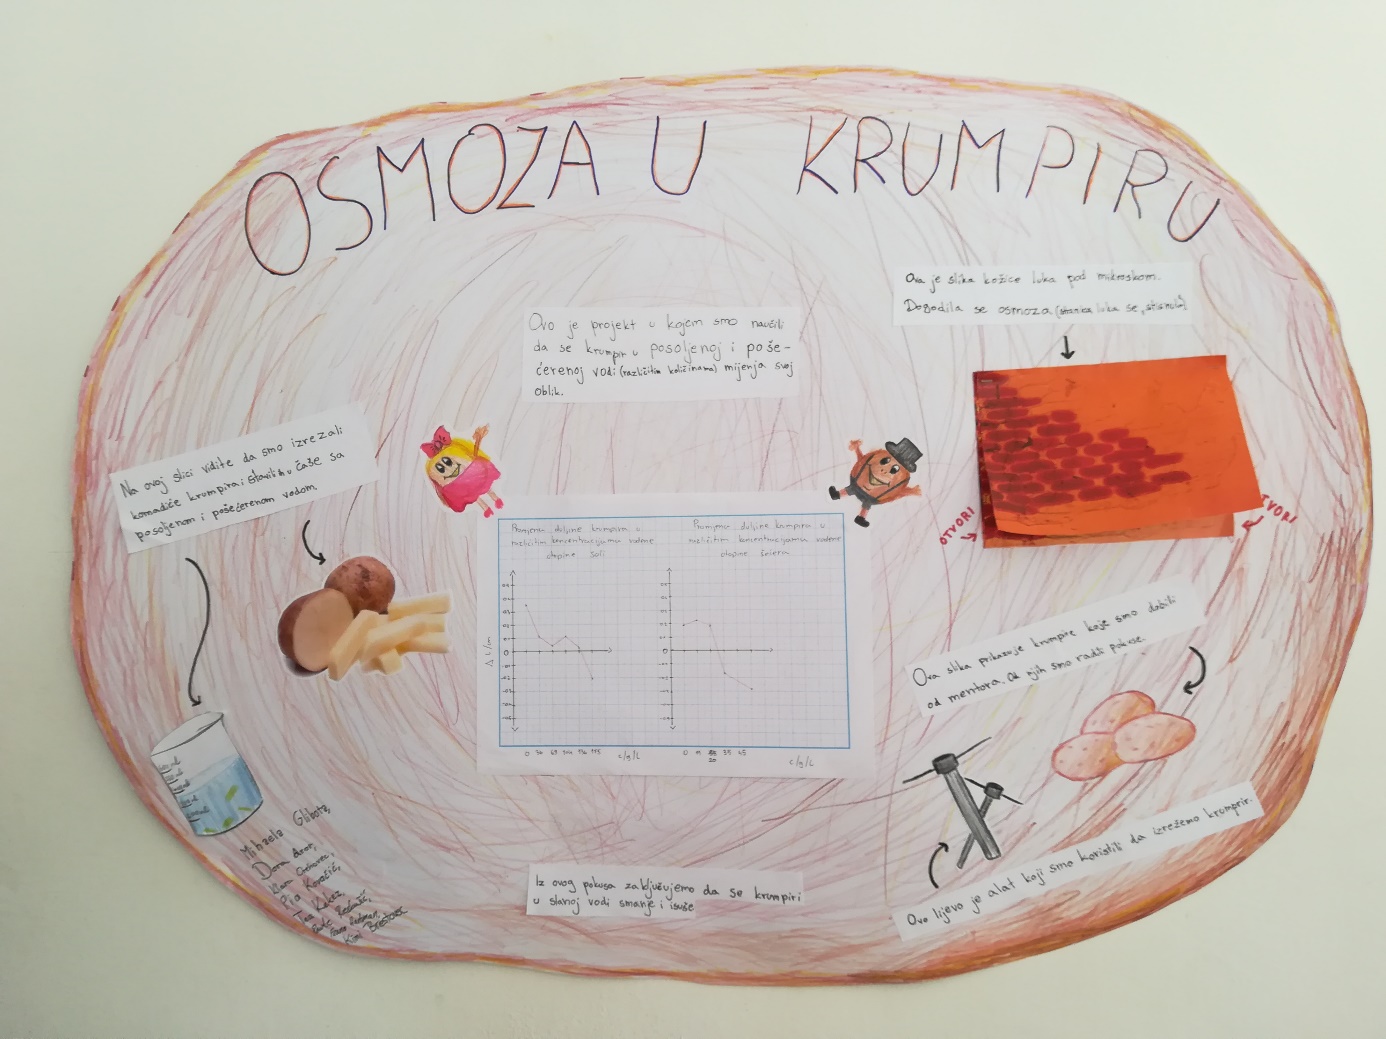 OSMOZA U KRUMPIRU
Ova je slika kožice luka pod mikroskom.
Dogodila se osmoza (stanica luka se „stisnula")
Ovo je projekt u kojem smo naučili
da se krumpir u posoljenoj i poše-
ćerenoj vodi (različitim količinama) mijenja svoj
oblik.
Na ovoj slici vidite da smo izrezali
komadiće krumpira i stavili ih u čaše sa
posoljenom i pošećerenom vodom.
OTVORI
OTVORI
Promjena duljine krumpira u
različitim koncentracijama vodene
otopine soli
Δ L/cm
0
c/g/L
Promjena duljine krumpira u
različitim koncentracijama vodene
otopine šećera
0
c/g/L
Ova slika prikazuje krumpire koje smo dobili
od mentora. Od njih smo radili pokuse.
Ovo lijevo je alat koji smo koristili da izrežemo krumprir.
Iz ovog pokusa zaključujemo da se krumpiri
u slanoj vodi smanje i isuše
Mihaela Glibota,
Dona
Pia Kovačić,
Tea
Kimi